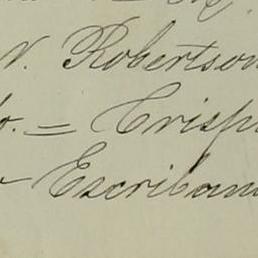 N. Robertson
o. = Crisp
Escriban